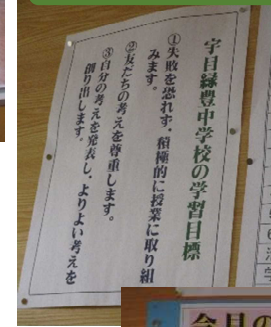 宇目緑豊中学校の学習目標
①失敗を恐れず、積極的に授業に取り組
みます。
②友だちの考えを尊重します。
③自分の考えを発表し、よりよい考えを
創り出します。
今月の